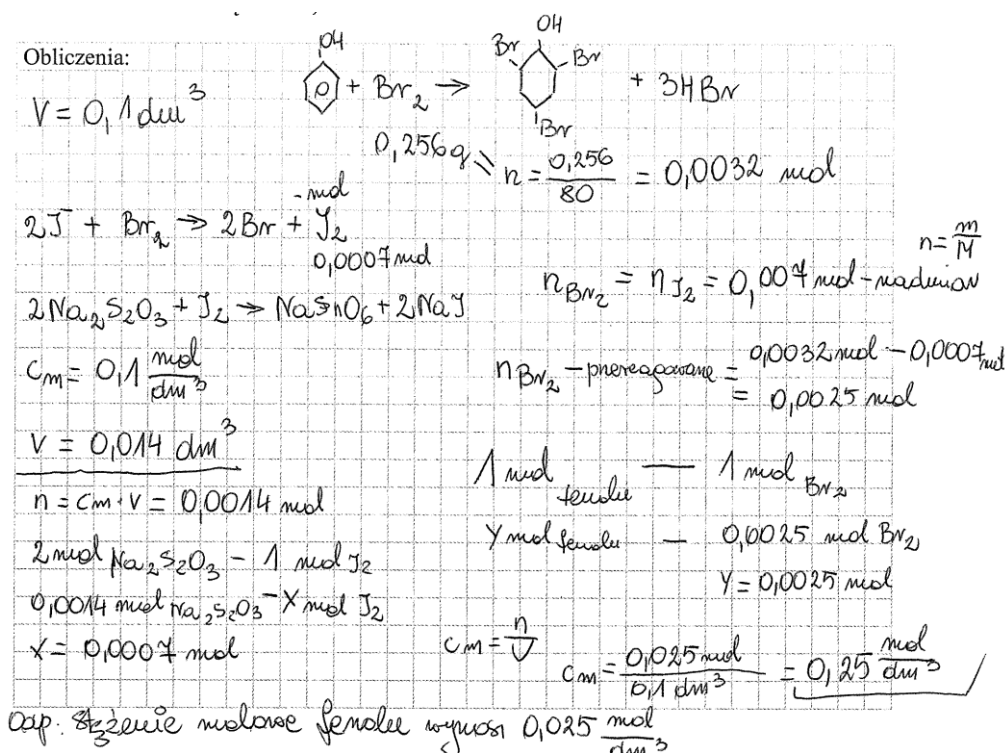 Obliczenia:
V = 0,1 dm³
OH
+ Br₂ → + 3HBr
OH
Br
Br
Br
0,256g
n = 0,256 / 80 = 0,0032 mol
2J⁻ + Br₂ → 2Br + J₂
- mol
0,0007 mol
n = m / M
n Br₂ = n J₂ = 0,007 mol - nadmiar
2Na₂S₂O₃ + J₂ → NaSnO₆ + 2NaJ
Cm = 0,1 mol / dm³
n Br₂ - przereagowane = 0,0032 mol - 0,0007 mol
= 0,0025 mol
V = 0,014 dm³
n = Cm · V = 0,0014 mol
1 mol fenolu — 1 mol Br₂
Y mol fenolu — 0,0025 mol Br₂
Y = 0,0025 mol
2 mol Na₂S₂O₃ - 1 mol J₂
0,0014 mol Na₂S₂O₃ - X mol J₂
X = 0,0007 mol
Cm = n / V
Cm = 0,025 mol / 0,1 dm³ = 0,25 mol / dm³
Odp. Stężenie molowe fenolu wynosi 0,025 mol / dm³